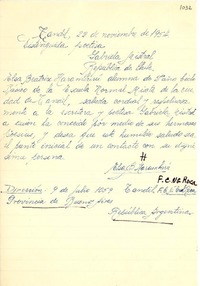 1032
Tandil, 29 de noviembre de 1954
Distinguida poetisa
Gabriela Mistral
República de Chile
Nelsa Beatriz alumna de
de la Escuela Normal Mixta de la ciu
dad de Tandil, saluda cordial y respetuosa-
mente a la escritora y poetisa Gabriela Mistral
a quien ha conocido por medio de sus hermosas
poesías, y desea que este humilde saludo sea
el punto inicial de un contacto con su digní-
sima persona.
#
F.C.N.G. ROCA
Dirección: 9 de Julio 1059 Tandil,
Provincia de Buenos Aires
República Argentina